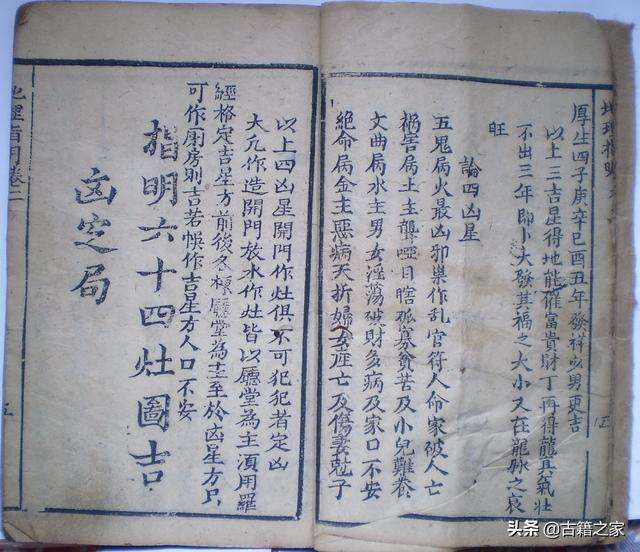 地理指明
厚生四子庚辛巳酉丑年發祥必男更吉
以上三吉星得地能催富貴財丁再得龍真氣壯
不出三年即小大發其福之大小又在龍脉之衰
旺
論四凶星
五鬼屬火最凶邪祟作乱官符人命家破人亡
禍害屬土主聾啞目瞎孤寡貧苦及小兒難養
文曲屬水主男女淫蕩破財多病及家口不安
絶命屬金主惡病夭折婦女産亡及傷妻剋子
以上四凶星開門作灶俱不可犯犯者定凶
大凢作造開門放水作灶皆以廳堂為主須用羅
經格定吉星方前後各棟廳堂為主至於凶星方只
可作厠房則吉若悞作吉星方人口不安
指明六十四灶圖吉
凶定局
地理指明卷二
五
头条 @古籍之家